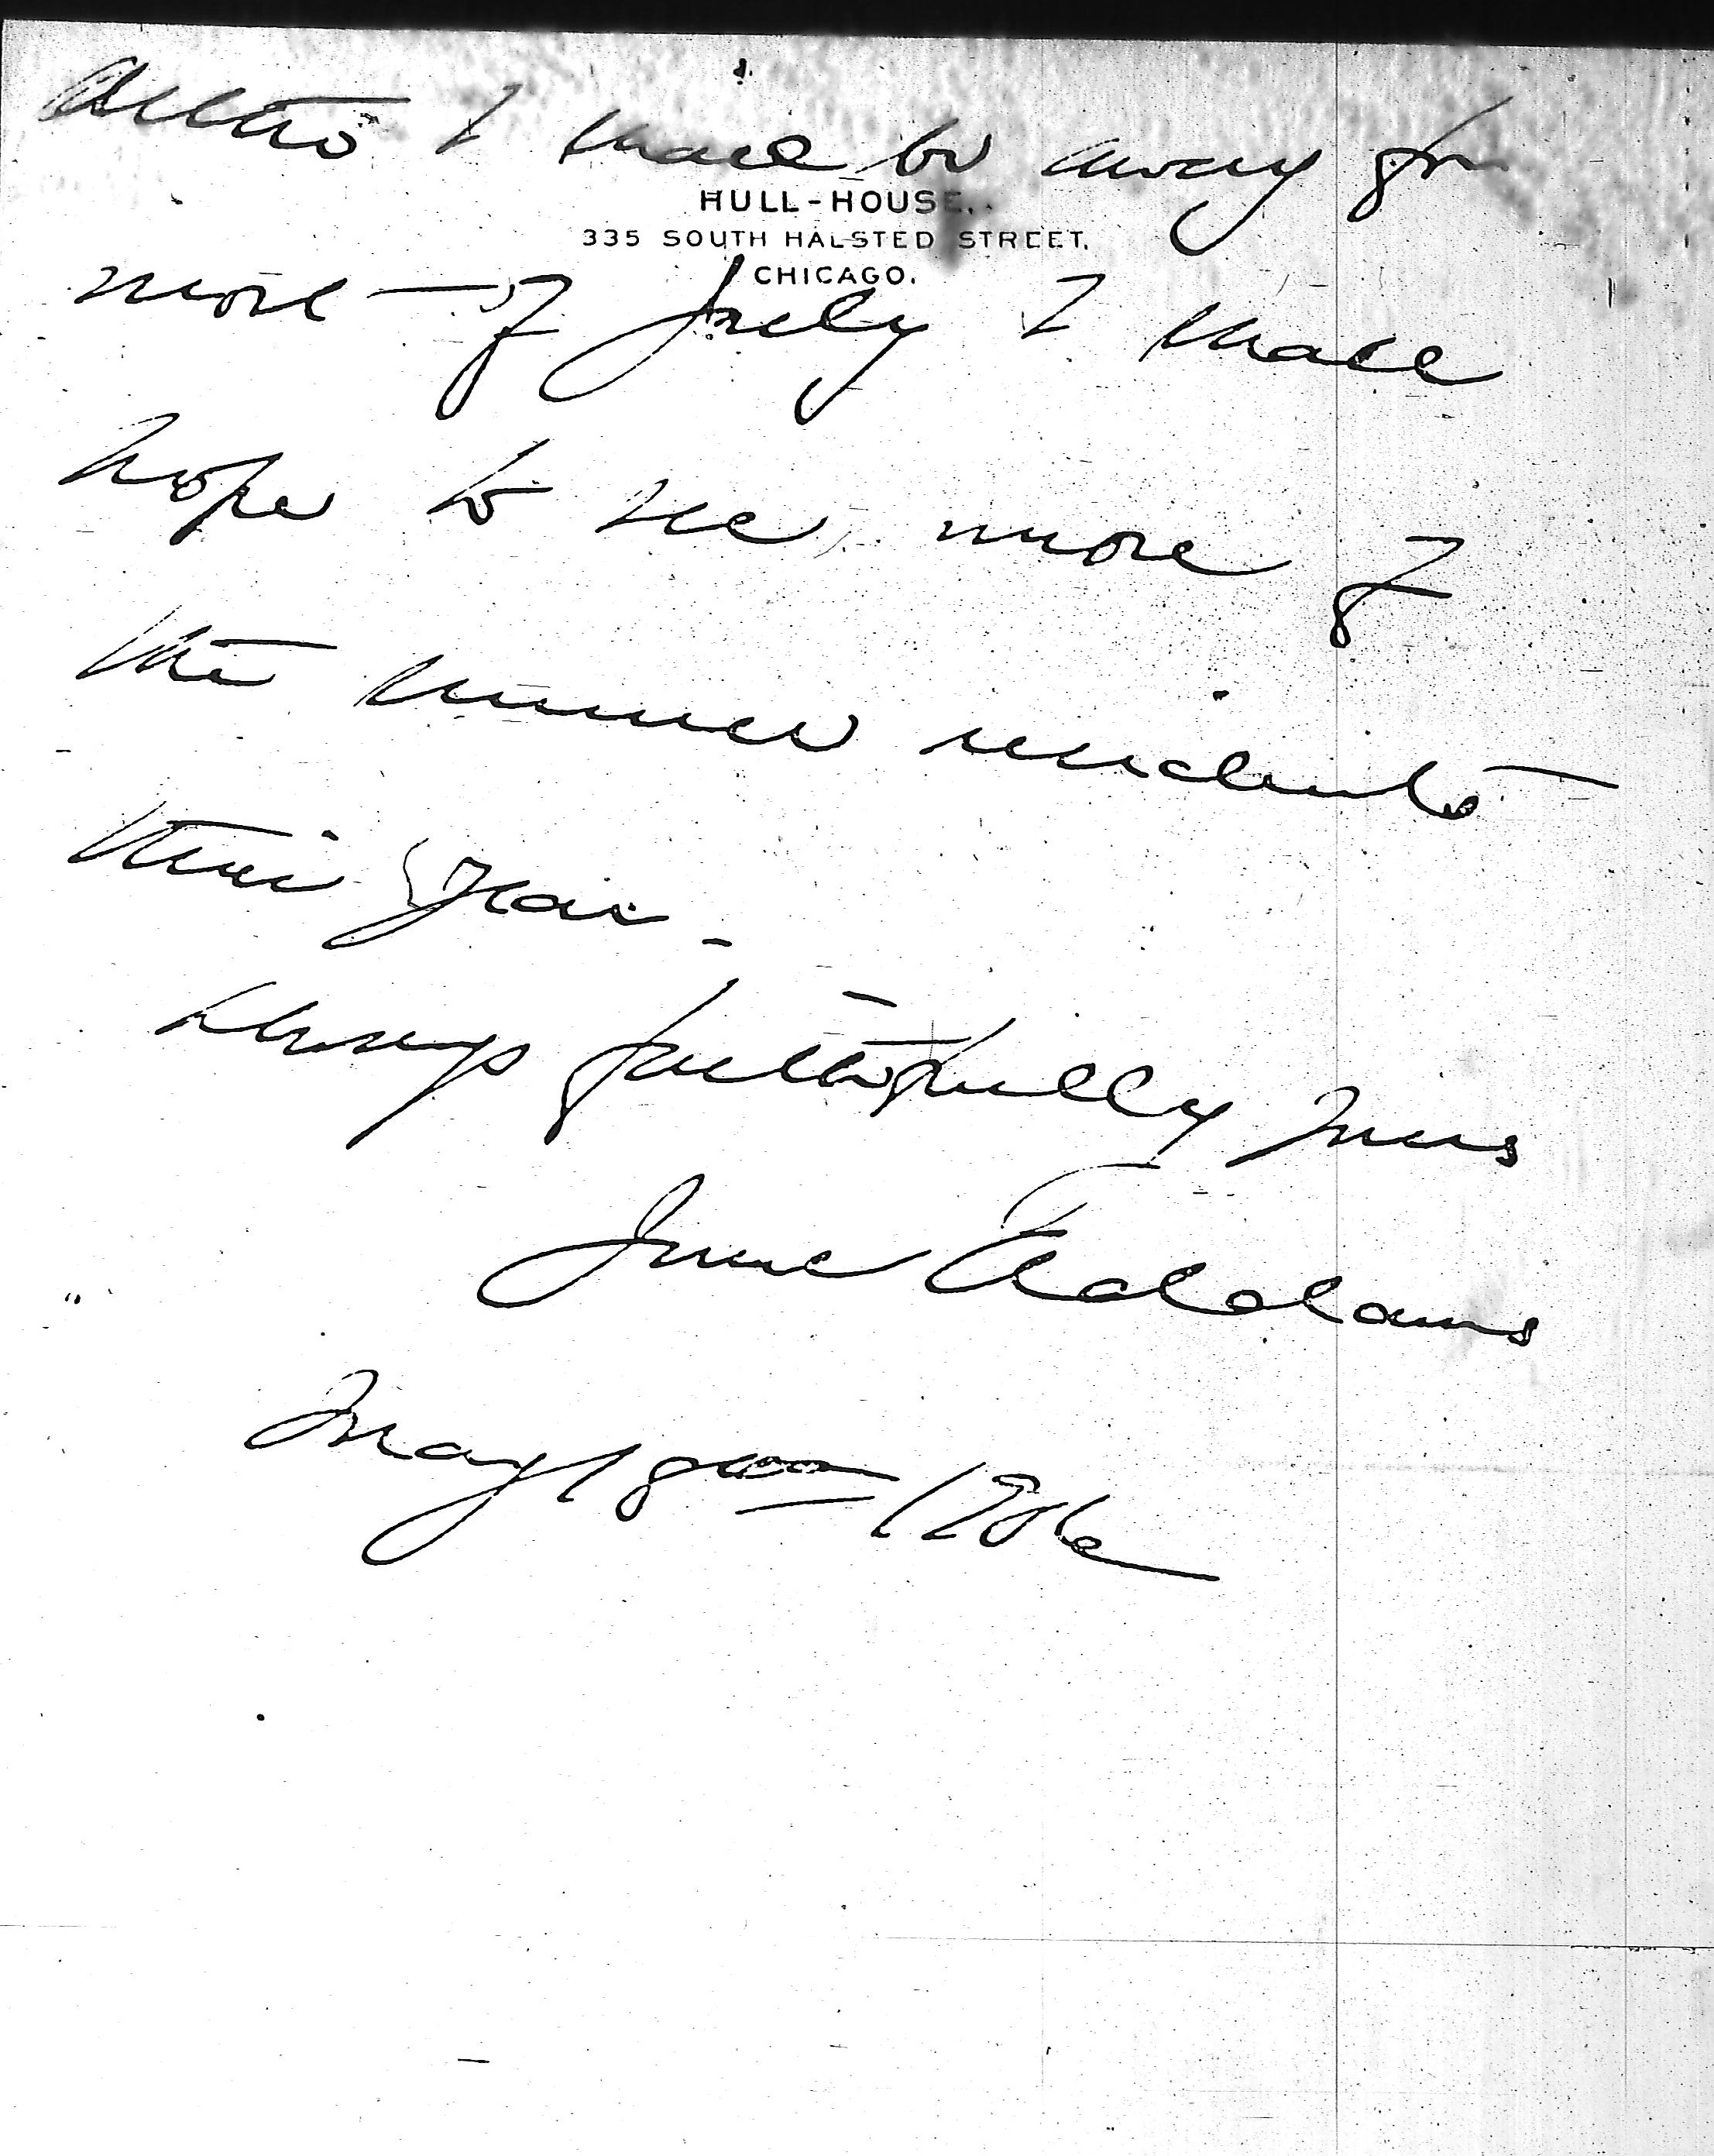 Altho I shall be away for
HULL-HOUSE.
335 SOUTH HALSTED STREET,
CHICAGO.
most of July I shall
hope to see more of
the summer residents
this year -
Always faithfully yours
Jane Addams
May 18" 1906